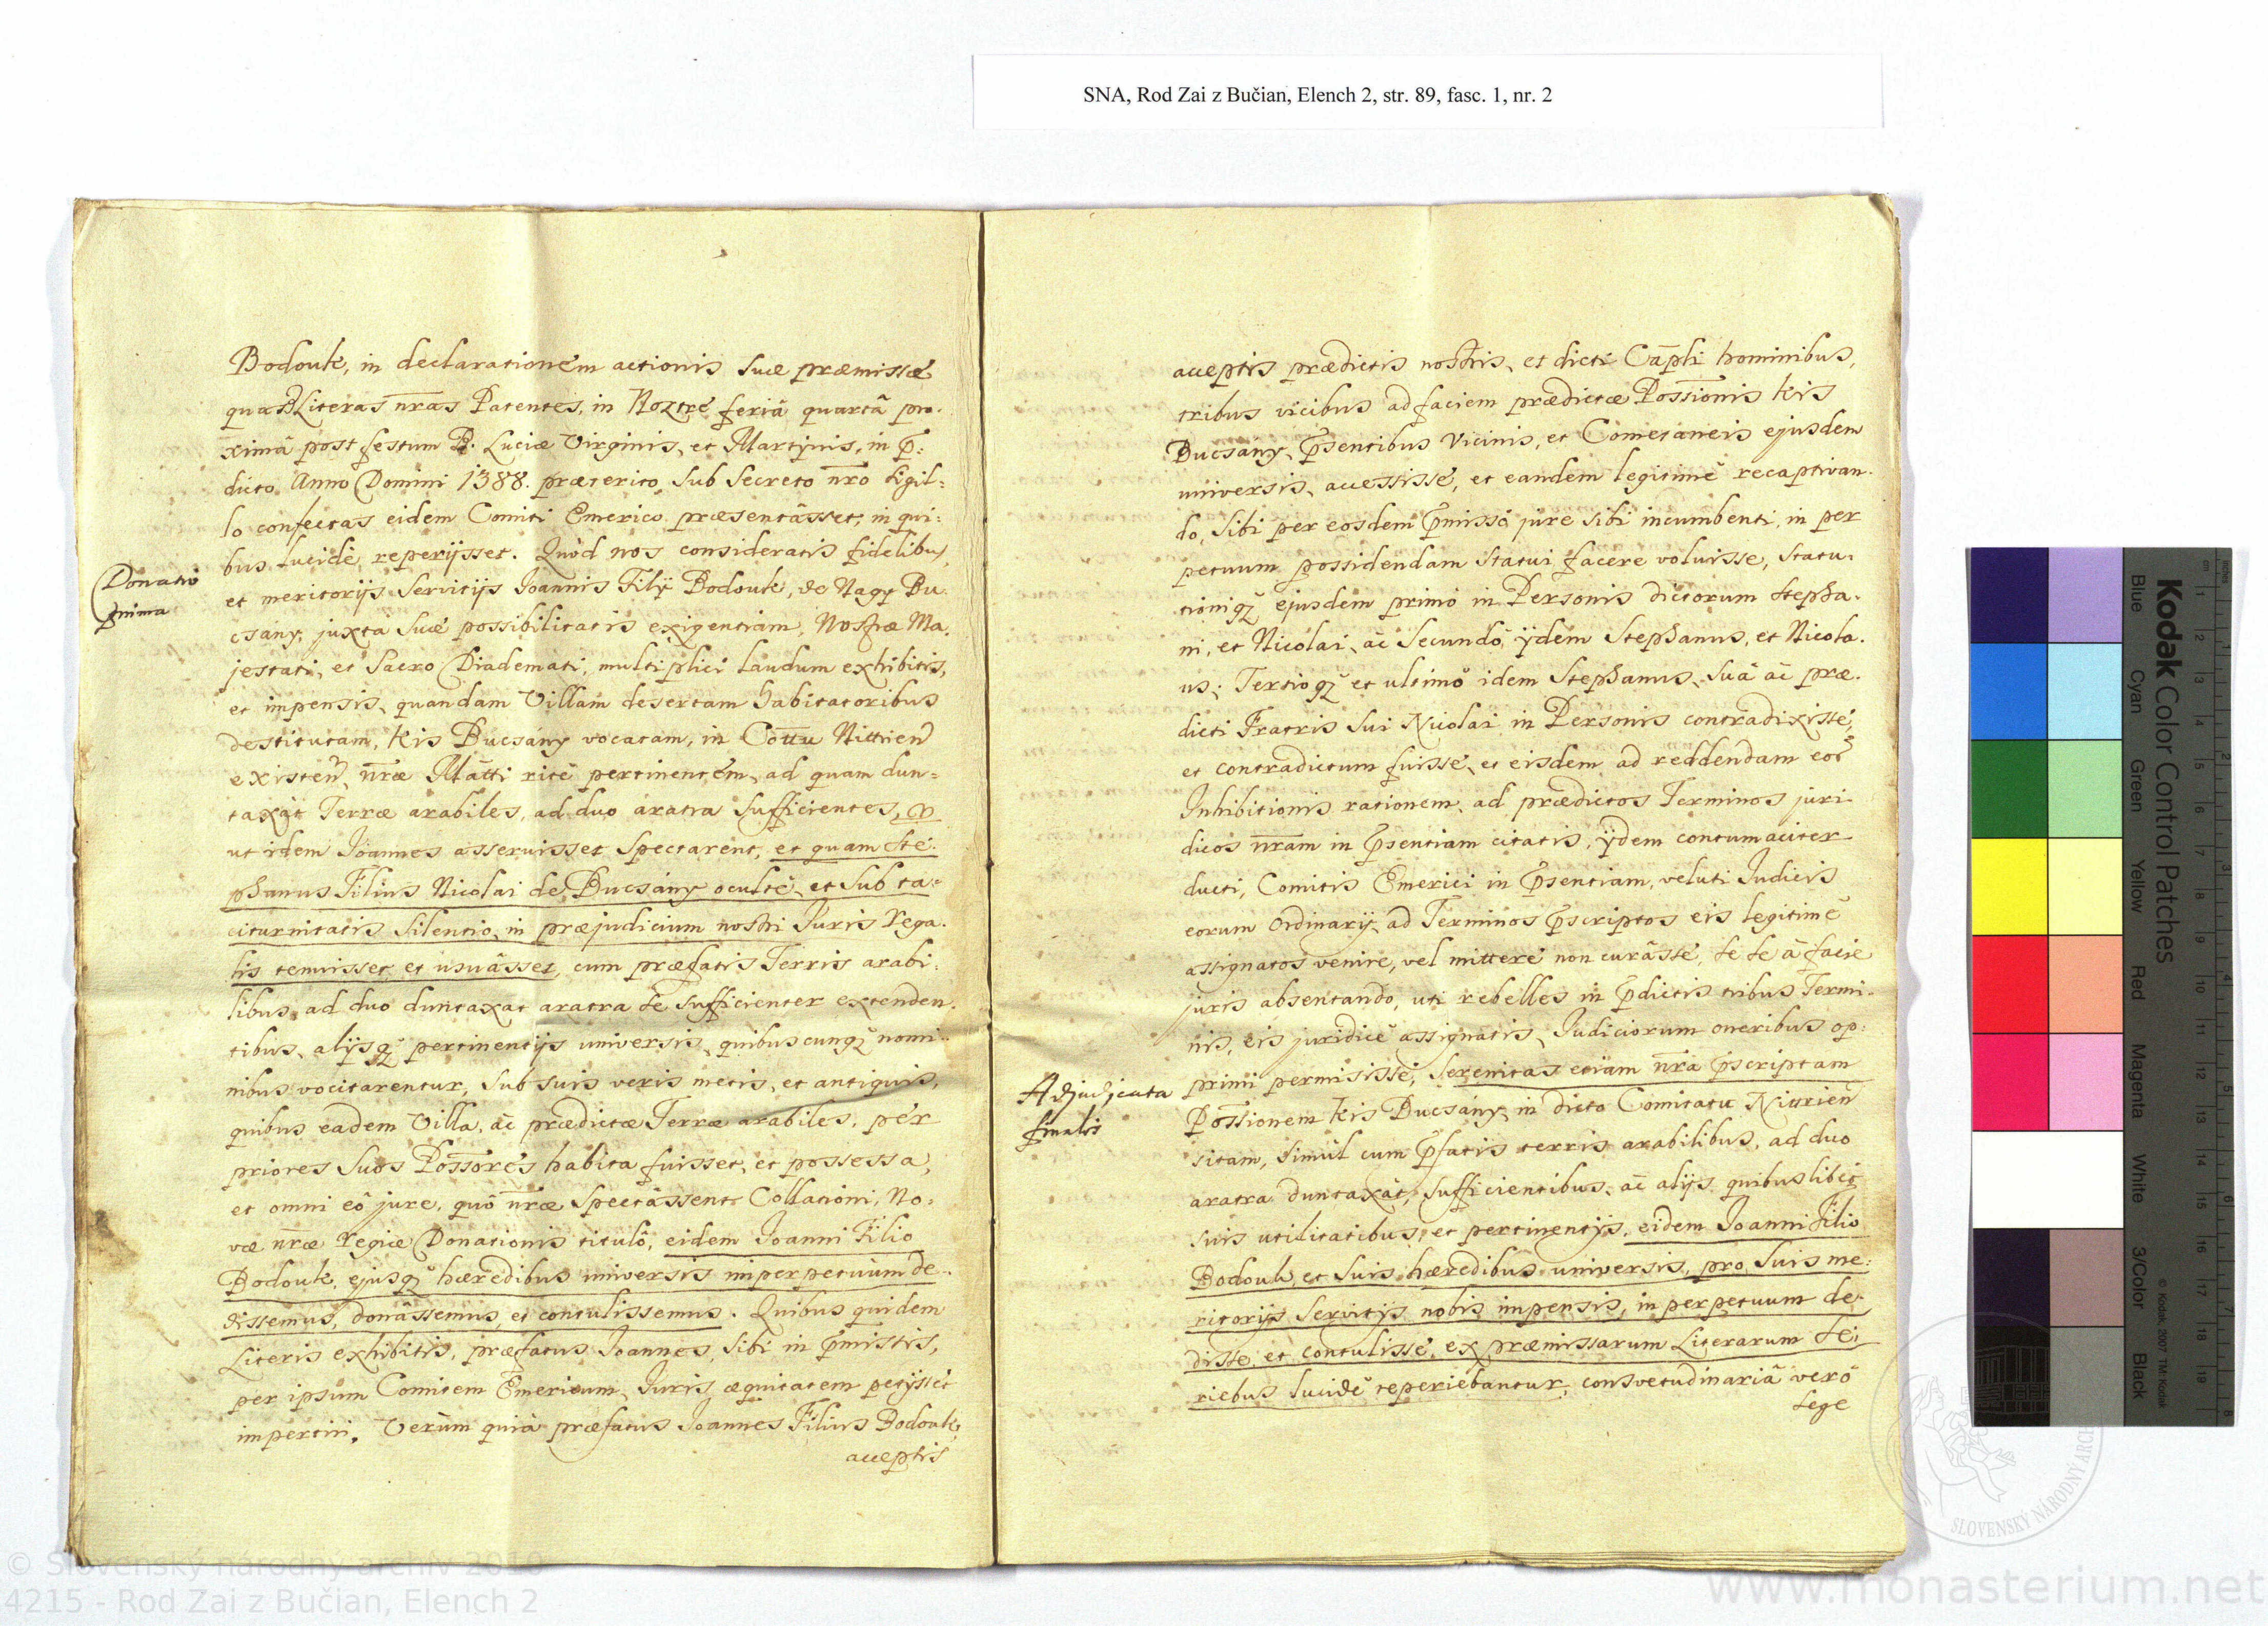 SNA, Rod Zai z Bučian, Elench 2, str. 89, fasc. 1, nr. 2
Bodouk, in declarationem actionis suæ præmissæ
quasd Literas nr̄as Patentes, in Noztre feriâ quartâ pro-
ximâ post festum B. Luciæ Virginis, et Martyris, in p̄-
dicto Anno Domini 1388. præterito, sub secreto nr̄o Sigil-
lo confectas eidem Comiti Emerico præsentâsset, in qui-
bus lucidè reperijsset. Quòd nos consideratis fidelibus,
et meritorijs Servitijs Joannis Filij Bodouk, de Nagy Bu-
csány, juxta suæ possibilitatis exigentiam, Nostræ Ma-
jestati, et Sacro Diademati, multiplici laudum exhibitis,
et impensis, quandam Villam desertam habitatoribus
destitutam, Kis Bucsány vocatam, in Cottu Nittrien
existen, nr̄æ Mātti ritè pertinentem, ad quam dun-
taxàt Terræ arabiles, ad duo aratra sufficientes,
ut idem Joannes asseruisset spectarent, et quam Ste-
phanus Filius Nicolai de Bucsány ocultè, et sub ta-
citurnitatis silentio, in præjudicium nostri Juris Rega-
lis tenuisset, et usuâsset, cum præfatis Terris arabi-
libus, ad duo duntaxat aratra se sufficienter extenden-
tibus, alijsq pertinentijs universis, quibuscunq nomi-
nibus vocitarentur, sub suis veris metis, et antiquis,
quibus eadem Villa, ac prædictæ Terræ arabiles, per
priores suos Possores habita fuisset, et possessa,
et omni eô jure, quô nr̄æ spectâssent Collationi, No-
væ nr̄æ Regiæ Donationis titulô, eidem Joanni Filio
Bodouk, ejusq hæredibus universis in perpetuùm de-
dissemus, donâssemus, et contulissemus. Quibus quidem
Literis exhibitis, præfatus Joannes, sibi in p̄missis,
per ipsum Comitem Emericum, Juris æquitatem petijsset
impertiri. Verùm quià præfatus Joannes Filius Bodouk,
acceptis
Donatio
prima
acceptis prædictis nostris, et dicti Cāpli hominibus,
tribus vicibus ad faciem prædictæ Possionis Kis
Bucsány, p̄sentibus Vicinis, et Cometaneis ejusdem
universis, accessisse, et eandem legitimè recaptivan-
do, sibi per eosdem p̄missô jure sibi incumbenti, in per
petuum possidendam statui facere voluisse, statu-
tioniq ejusdem primò in Personis dictorum Stepha-
ni, et Nicolai, ac Secundò ijdem Stephanus, et Nicola-
us, Tertioq et ultimô idem Stephanus, suâ ac præ-
dicti Fratris sui Nicolai in Personis contradixisse,
et contradictum fuisse, et eisdem ad reddendam eor
Inhibitionis rationem, ad prædictos Terminos juri-
dicos nr̄am in p̄sentiam citatis, ijdem contumaciter
ducti, Comitis Emerici in p̄sentiam, veluti Judicis
eorum Ordinarij, ad Terminos p̄scriptos eis legitimè
assignatos venire, vel mittere non curâsse, se se â facie
juris absentando, uti rebelles in p̄dictis tribus Termi-
nis, eis juridicè assignatis, Judiciorum oneribus op-
primi permisisse, Serenitas etiam nr̄a p̄scriptam
Possionem Kis Bucsány, in dicto Comitatu Nittrien
sitam, simùl cum p̄fatis terris arabilibus, ad duo
aratra duntaxàt, sufficientibus, ac alijs quibuslibet
suis utilitatibus, et pertinentijs, eidem Joanni Filio
Bodouk, et suis hæredibus universis, pro suis me-
ritorijs Servitijs nobis impensis, in perpetuum de-
disse, et contulisse, ex præmissarum Literarum Se-
riebus lucidè reperiebantur, consvetudinariâ verô
Lege
Adjudicata
finalis
Kodak Color Control Patches
Blue Cyan Green Yellow Red Magenta White 3/Color Black
© Kodak, 2007 TM: Kodak
SLOVENSKÝ NÁRODNÝ ARCH
© Slovenský národný archív 2010
4215 - Rod Zai z Bučian, Elench 2
www.monasterium.net